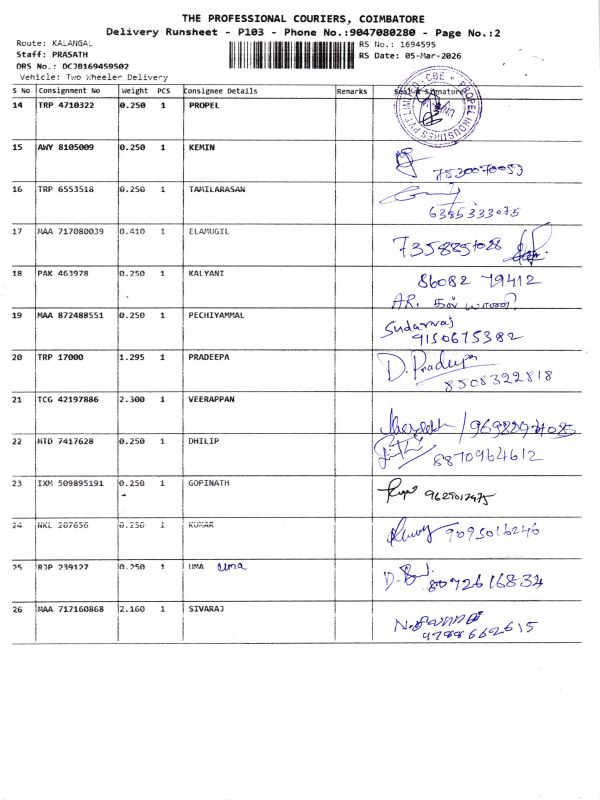 THE PROFESSIONAL COURIERS, COIMBATORE
Delivery Runsheet - P103 - Phone No.:9047080280 - Page No.:2
Route: KALANGAL
RS No.: 1694595
Staff: PRASATH
RS Date: 05-Mar-2026
DRS No.: DCJB169459502
Vehicle: Two Wheeler Delivery
S No Consignment No Weight PCS Consignee Details Remarks Seal & Signature
14 TRP 4710322 0.250 1 PROPEL
PROPEL INDUSTRIES PVT LIMITED - CBE
15 AWY 8105009 0.250 1 KEMIN
7530070053
16 TRP 6553518 0.250 1 TAMILARASAN
6385333075
17 MAA 717080039 0.410 1 ELAMUGIL
18 PAK 463978 0.250 1 KALYANI 86082 79412
AR.
19 MAA 872488551 0.250 1 PECHIYAMMAL Sudarraj
9150675382
20 TRP 17000 1.295 1 PRADEEPA D. Pradeepa
8508322818
21 TCG 42197886 2.300 1 VEERAPPAN
22 MTD 7417628 0.250 1 DHILIP 8870964612
23 IXM 509895191 0.250 1 GOPINATH
24 NKL 207656 0.250 1 KUMAR 9095016246
25 RJP 239127 0.250 1 UMA uma
8072616834
26 MAA 717160868 2.160 1 SIVARAJ